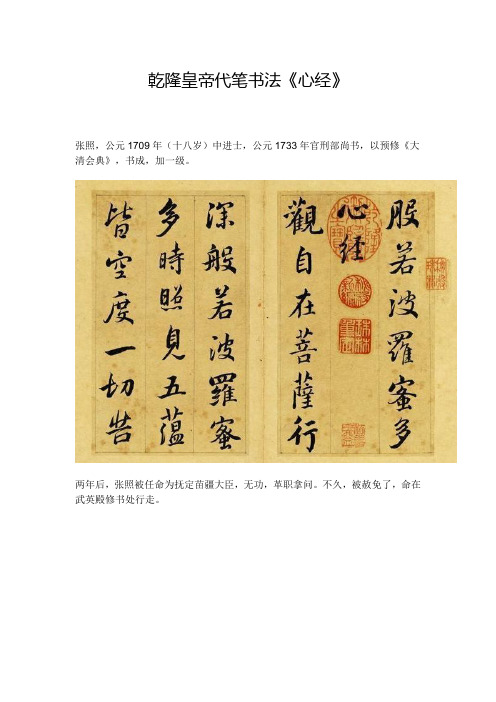 乾隆皇帝代笔书法《心经》
张照，公元 1709 年（十八岁）中进士，公元 1733 年官刑部尚书，以预修《大
清会典》，书成，加一级。
般若波羅蜜多
心經
觀自在菩薩行
深般若波羅蜜
多時照見五蘊
皆空度一切苦
两年后，张照被任命为抚定苗疆大臣，无功，革职拿问。不久，被赦免了，命在
武英殿修书处行走。